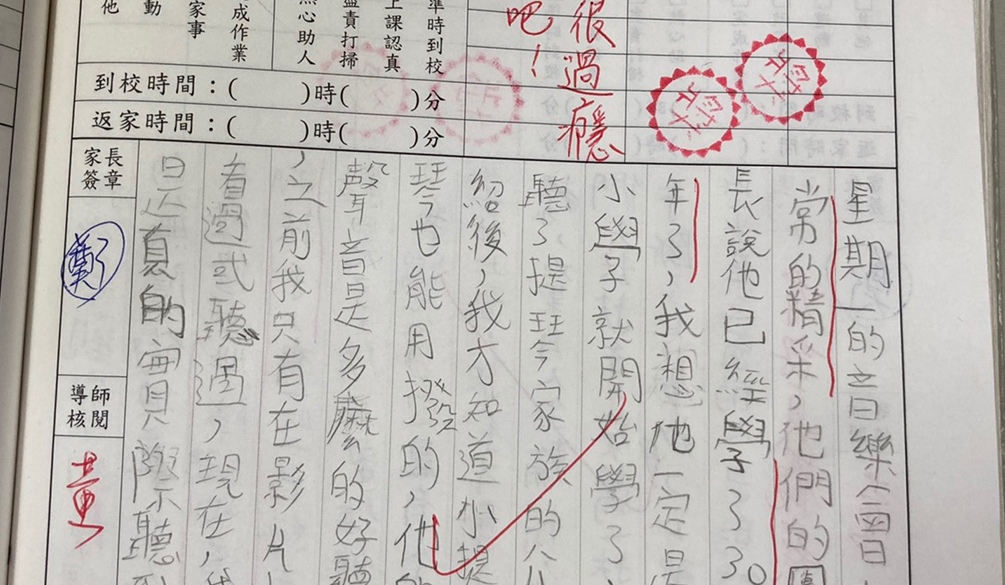 準時到校
上課認真
盡責打掃
心助人
成作業
家事
動
他
很過癮
吧！
到校時間：(　　)時(　　)分
返家時間：(　　)時(　　)分
家長
簽章
鄭
導師
核閱
星期一的音樂會
常的精采，他們的團
長說他已經學了30
年了，我想他一定是
小學就開始學了
聽了提琴家族的介
紹後，我才知道小提
琴也能用撥的，他的
聲音是多麼的好聽
，之前我只有在影片
看過或聽過，現在，
是真的實際聽